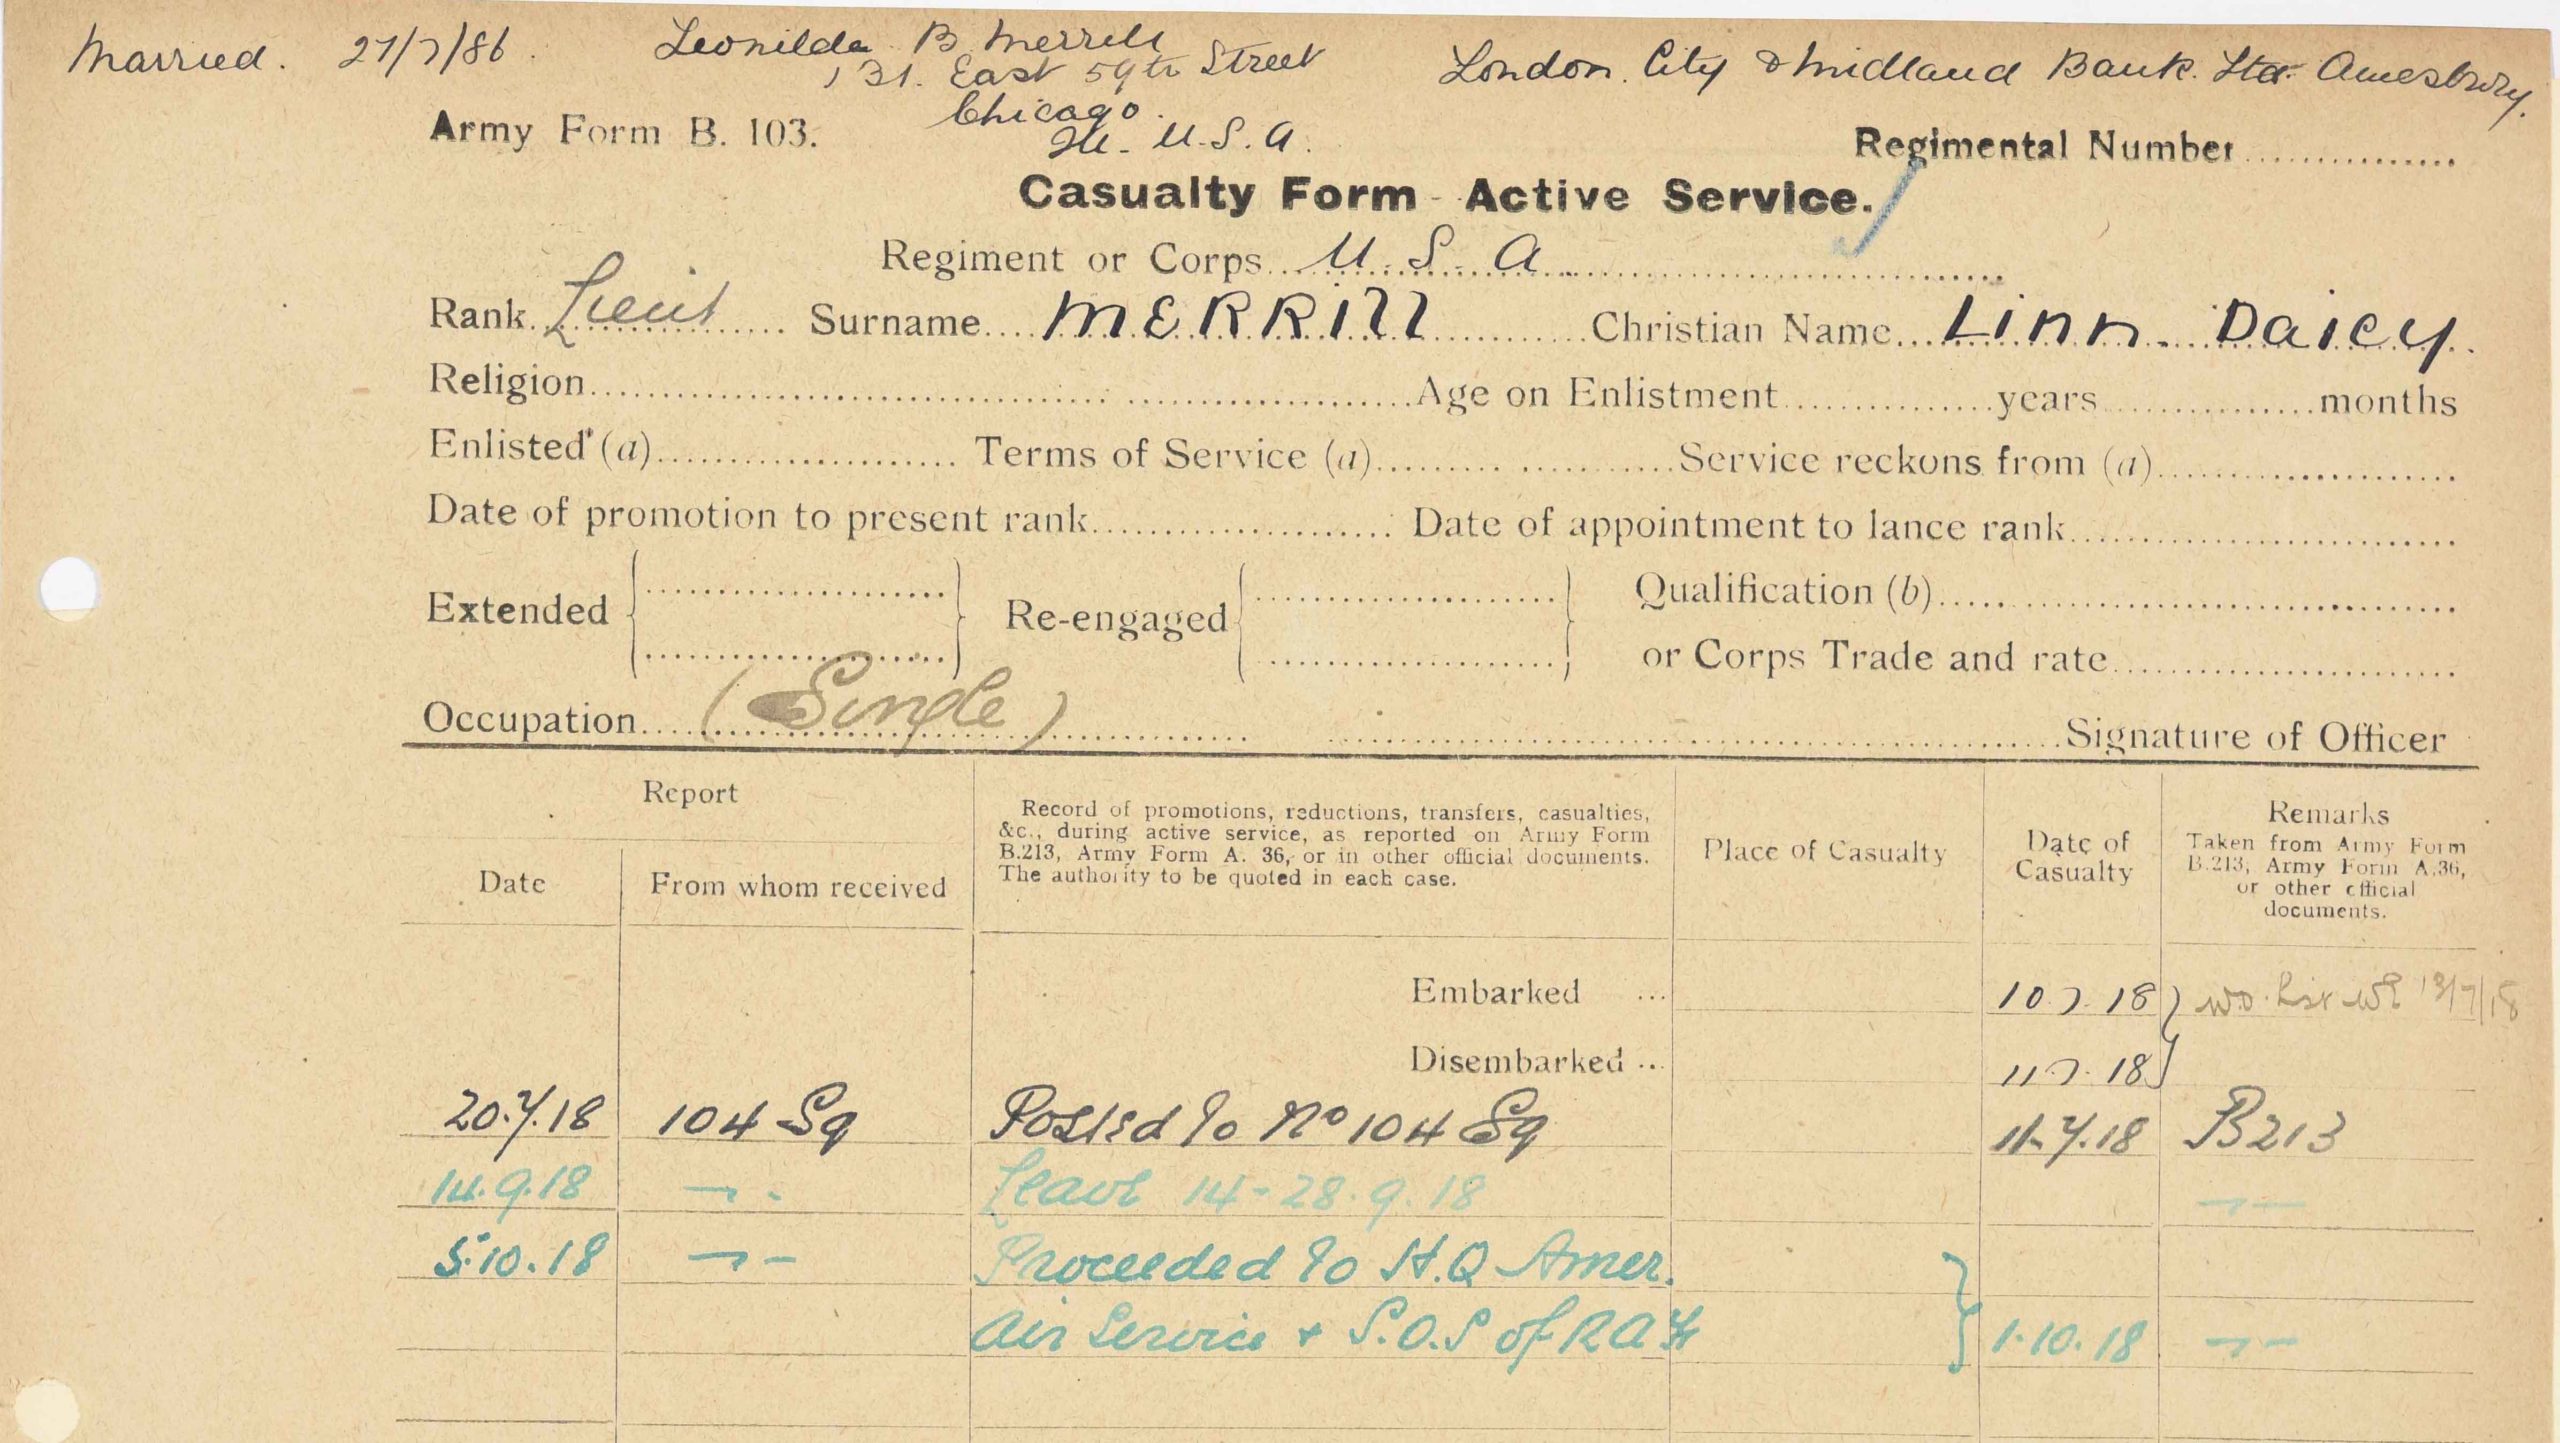 Married. 27/7/86. Leonilda B Merrill London City & Midland Bank. Ltd. Amesbury.
131. East 59th Street
Chicago.
Ill. U.S.A.
Army Form B. 103. Regimental Number
Casualty Form - Active Service.
Regiment or Corps U. S. A.
Rank Lieut Surname MERRill Christian Name Linn. Daicy
Religion Age on Enlistment years months
Enlisted (a) Terms of Service (a) Service reckons from (a)
Date of promotion to present rank Date of appointment to lance rank
Extended Re-engaged Qualification (b)
or Corps Trade and rate
Occupation (Single) Signature of Officer
Report
Date From whom received
Record of promotions, reductions, transfers, casualties,
&c., during active service, as reported on Army Form
B.213, Army Form A. 36, or in other official documents.
The authority to be quoted in each case.
Place of Casualty
Date of
Casualty
Remarks
Taken from Army Form
B.213, Army Form A.36,
or other official
documents.
Embarked ... 10.7.18 W.O. List WE 13/7/18
Disembarked ... 11.7.18
20.7.18 104 Sq Posted to No 104 Sq 11.7.18 B213
14.9.18 Leave 14-28.9.18
5.10.18 Proceeded to H.Q Amer.
Air Service & S.O.S of RAF 1.10.18